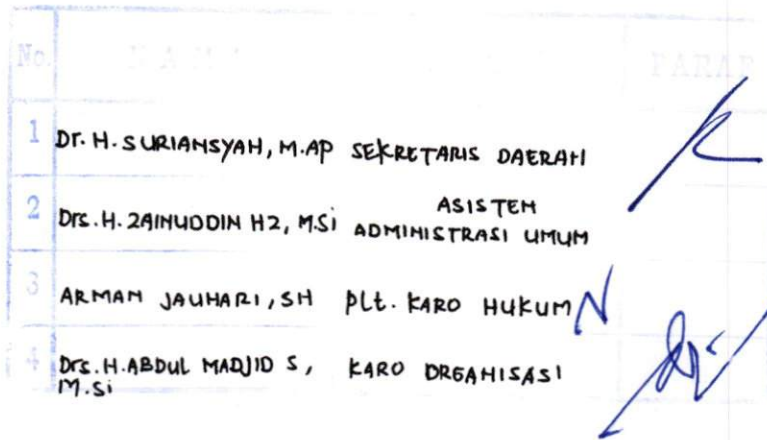 No. NAMA PARAF
1 Dr. H. SURIANSYAH, M.AP SEKRETARIS DAERAH
2 Drs. H. ZAINUDDIN HZ, M.Si ASISTEN
ADMINISTRASI UMUM
3 ARMAN JAUHARI, SH Plt. KARO HUKUM
4 Drs. H. ABDUL MADJID S, KARO ORGANISASI
M.Si